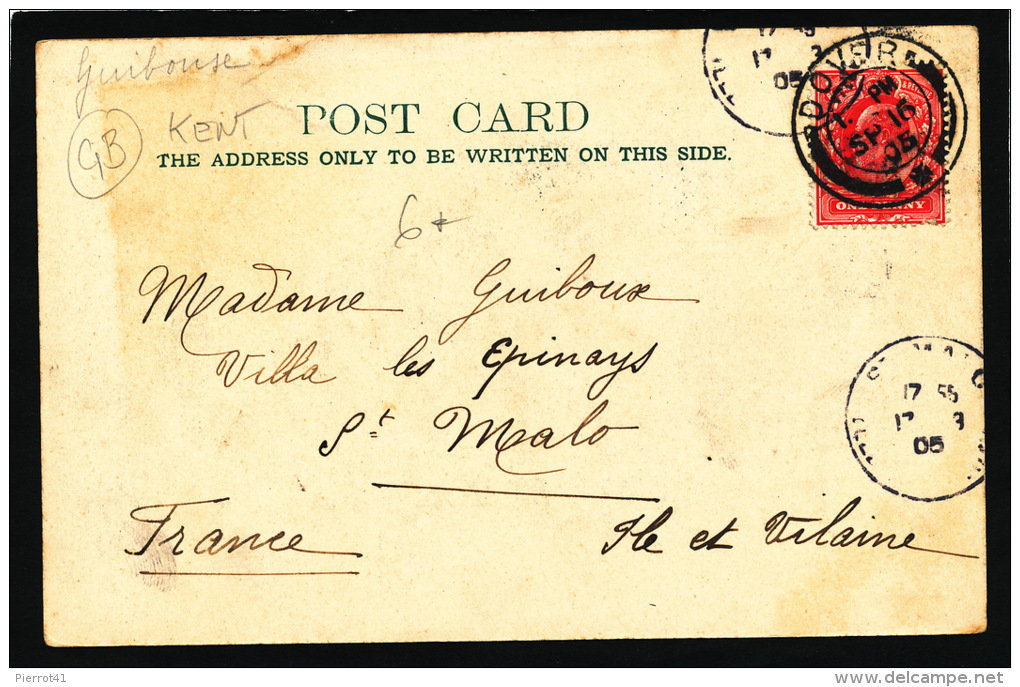 Guibouse
GB
KENT
POST CARD
THE ADDRESS ONLY TO BE WRITTEN ON THIS SIDE.
6
DOVER
PM
SP 16
05
ONE PENNY
17 55
17
05
Madame Guiboux
Villa les Epinays
St Malo
France Ile et Vilaine
17 55
17 9
05
Pierrot41
delcampe.net